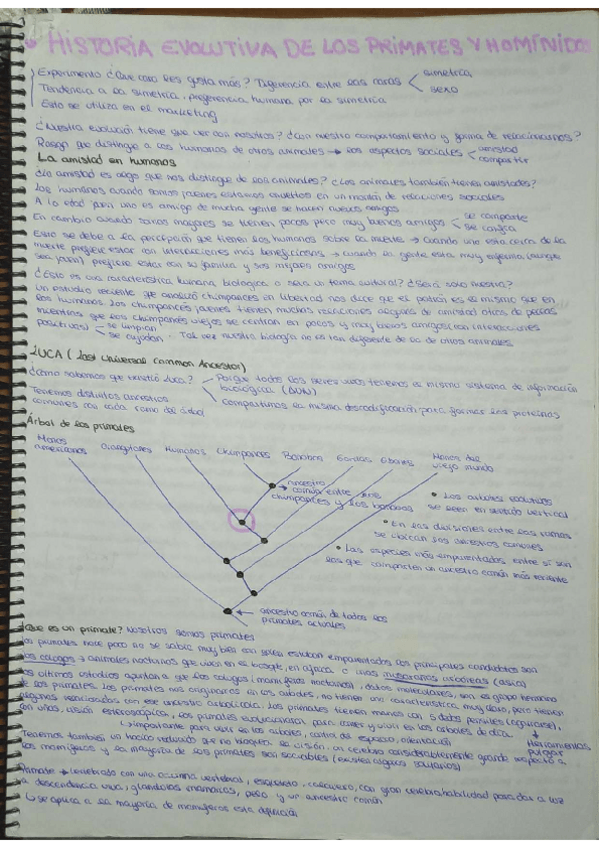 HISTORIA EVOLUTIVA DE LOS PRIMATES Y HOMÍNIDOS
Experimento ¿Que cara les gusta más? Diferencia entre las caras simetría
sexo
Tendencia a la simetría, preferencia humana por la simetría
Esto se utiliza en el marketing
¿Nuestra evolución tiene que ver con nosotros? ¿Con nuestro comportamiento y forma de relacionarnos?
Rasgo que distingue a los humanos de otros animales → los aspectos sociales amistad
compartir
La amistad en humanos
¿La amistad es algo que nos distingue de los animales? ¿Los animales también tienen amistades?
Los humanos cuando somos jóvenes estamos envueltos en un montón de relaciones sociales
A lo edad juvenil uno es amigo de mucha gente se hacen nuevos amigos
En cambio cuando somos mayores se tienen pocos pero muy buenos amigos se comparte
se confía
Esto se debe a la percepción que tienen los humanos sobre la muerte → cuando uno esta cerca de la
muerte prefiere estar con interacciones más beneficiosas → cuando la gente esta muy enferma (aunque
sea joven) prefiere estar con su familia y sus mejores amigos
¿Esto es una característica humana biologica o sera un tema cultural? ¿Será solo nuestra?
Un estudio reciente que analizó chimpances en libertad nos dice que el patrón es el mismo que en
los humanos. Los chimpancés jóvenes tienen muchas relaciones algunas de amistad otras de peleas
mientras que los chimpancés viejos se centran en pocos y muy buenos amigos (con interacciones
positivas) se limpian
se ayudan. Tal vez nuestra biología no es tan diferente de la de otros animales.
LUCA (Last Universal Common Ancestor)
¿Como sabemos que existió Luca? Porque todos los seres vivos tenemos el mismo sistema de información
biológica (ADN)
Tenemos distintos ancestros
comunes con cada rama del árbol
Compartimos la misma descodificación para formar las proteínas
Árbol de los primates
Monos
americanos
Orangutanes
Humanos
Chimpancés
Bonobos
Gorilas
Gibones
Monos del
viejo mundo
ancestro
común entre los
chimpancés y los bonobos
Los arboles evolutivos
se leen en sentido vertical
En las divisiones entre las ramas
se ubican los ancestros comunes
Las especies más emparentadas entre sí son
las que comparten un ancestro común más reciente
ancestro común de todos los
primates actuales
¿Que es un primate? Nosotros somos primates
los primates hace poco no se sabía muy bien con quien estaban emparentados los principales candidatos son
los colugos → animales nocturnos que viven en el bosque, en africa o unas musarañas arbóreas (asia)
los ultimos estudios apuntan a que los colugos (mamíferos nocturnos), datos moleculares, son el grupo hermano
de los primates. Los primates nos originamos en los arboles, no tienen una característica muy clara, pero tienen
algunas relacionadas con ese ancestro arborícola. Los primates tienen manos con 5 dedos
con uñas, visión estereoscópica, los primates evolucionaron para comer y vivir en los arboles de día.
importante para vivir en los arboles, control del espacio, orientación
Herramientas
pulgar
Tenemos también un hocico reducido que no bloquea la visión, un cerebro considerablemente grande respecto a
los mamíferos y la mayoría de los primates son sociables (existen algunos solitarios)
Primate → vertebrado con una columna vertebral, esqueleto, calavera, con gran cerebro habilidad para dar a luz
a descendencia viva, glándulas mamarias, pelo y un ancestro común
se aplica a la mayoría de mamíferos esta definición